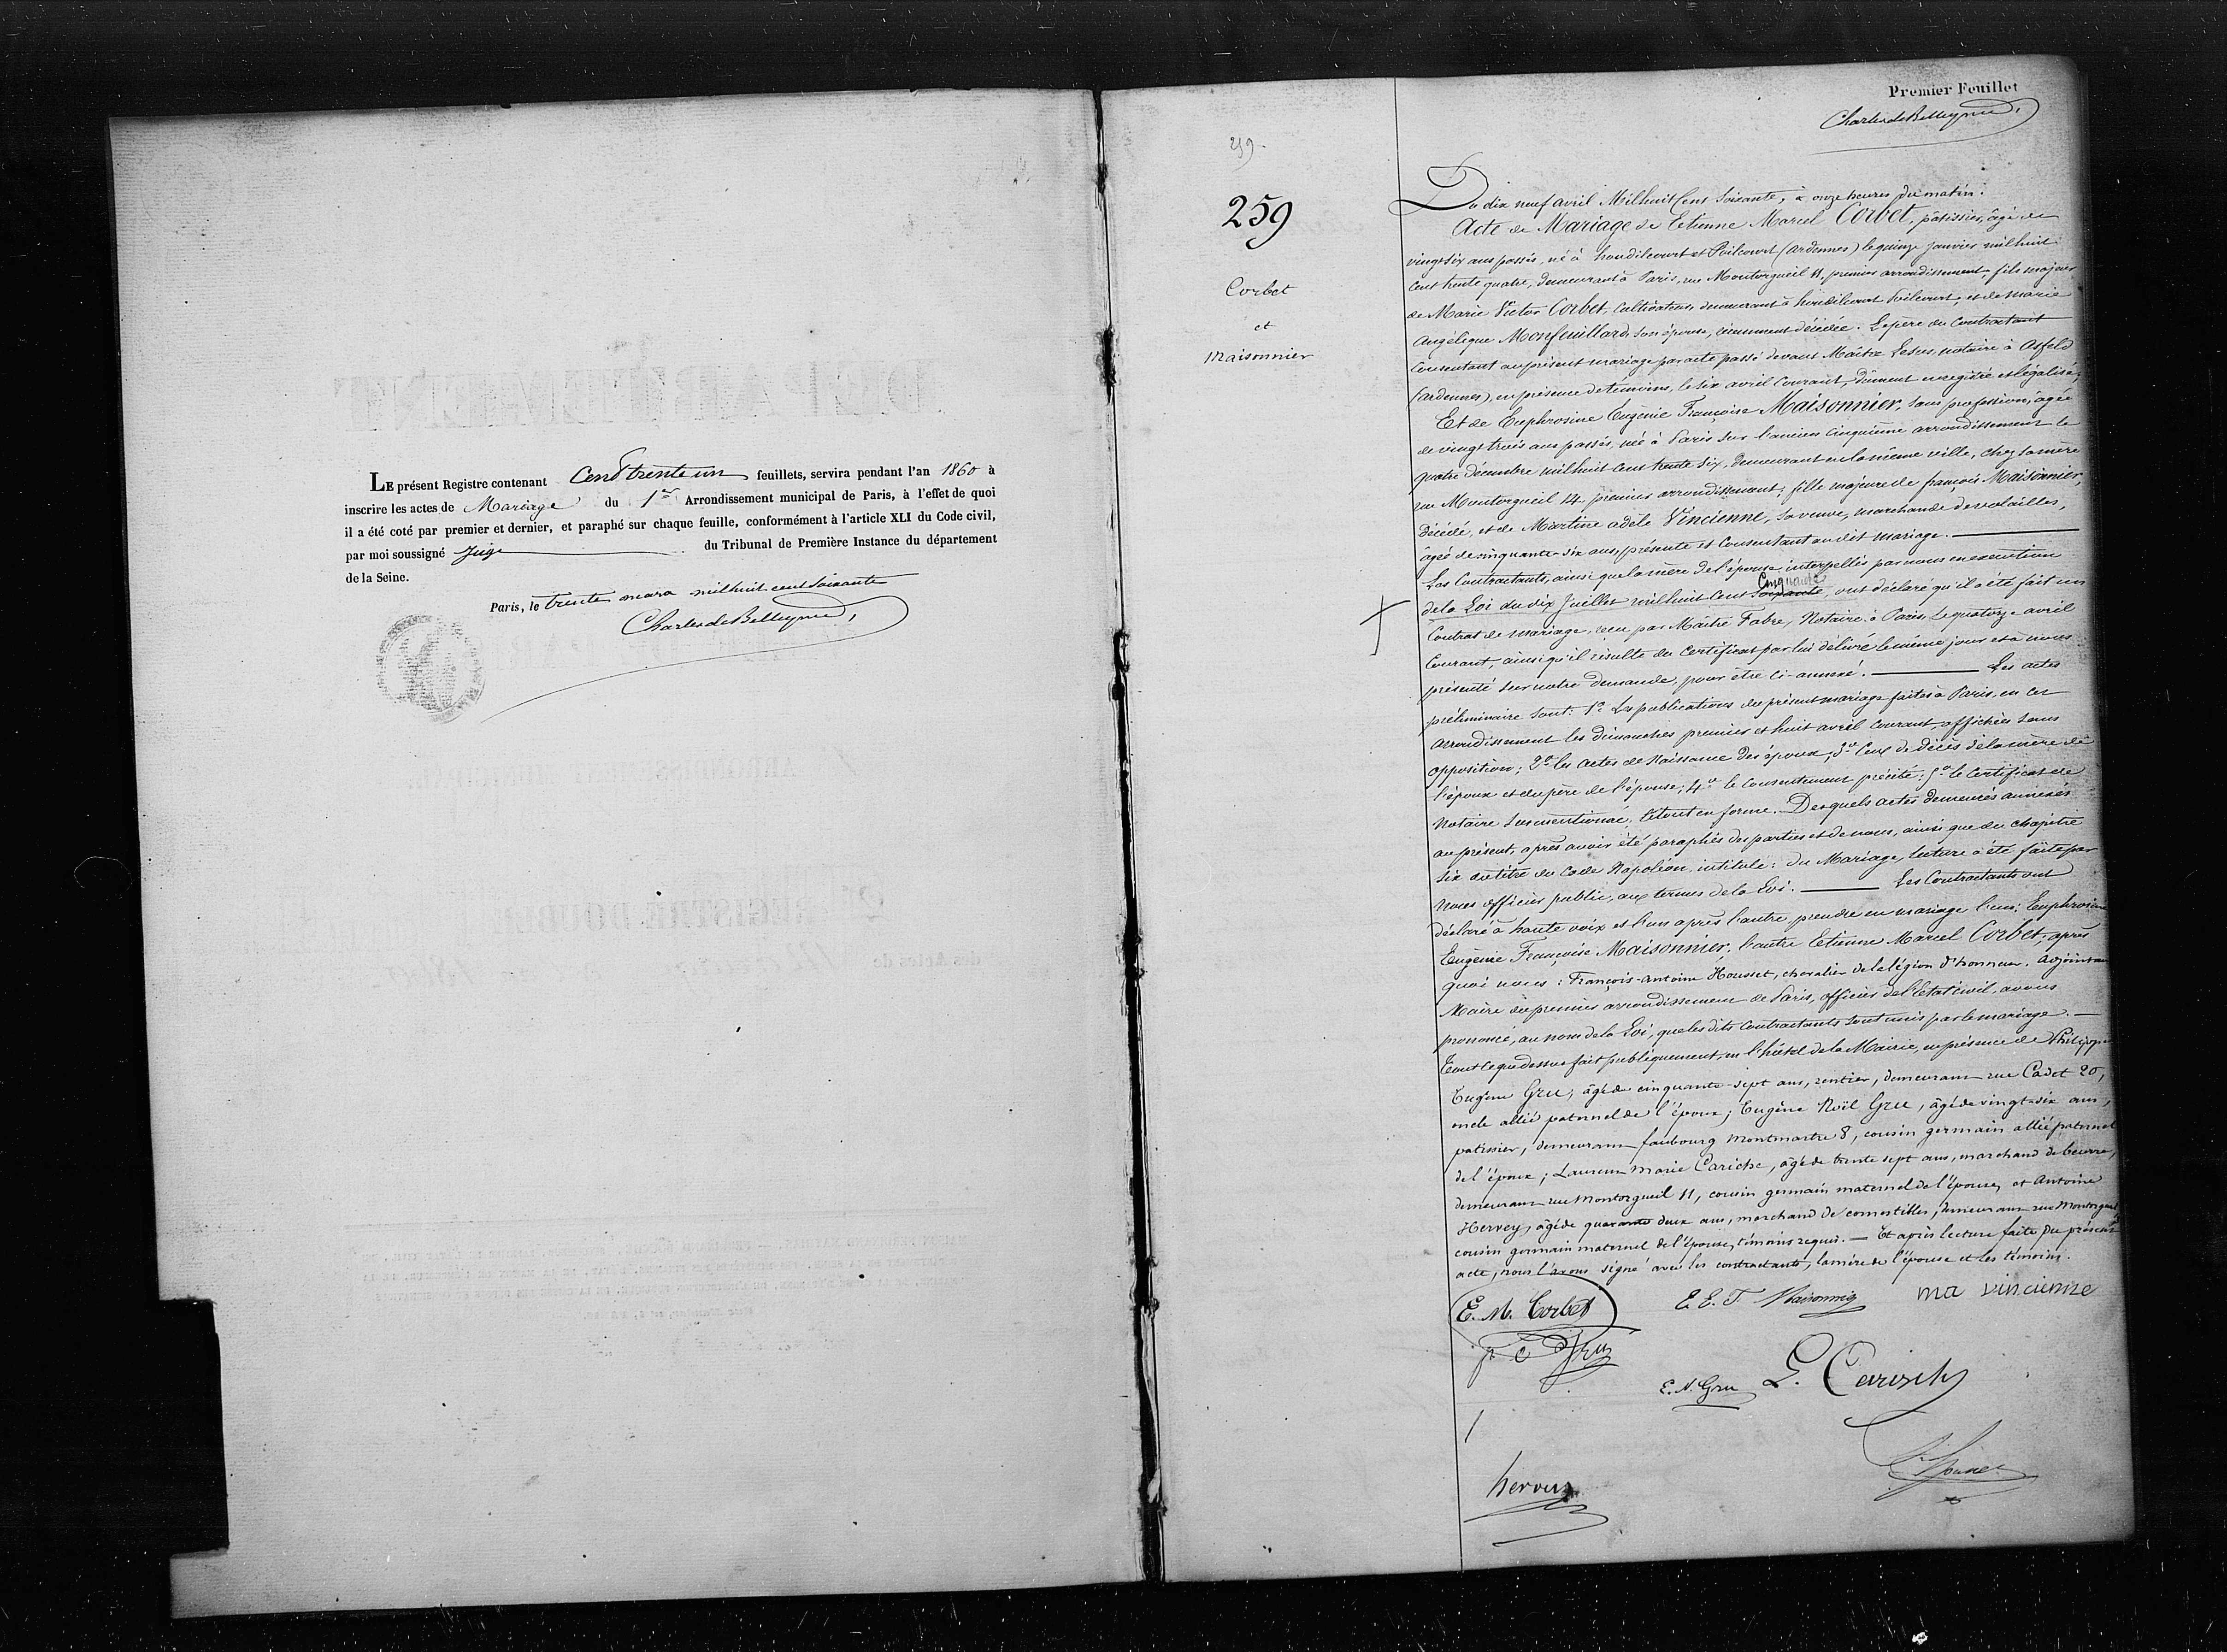 LE présent Registre contenant Cent trente un feuillets, servira pendant l'an 1860 à
inscrire les actes de Mariage du 1er Arrondissement municipal de Paris, à l'effet de quoi
il a été coté par premier et dernier, et paraphé sur chaque feuille, conformément à l'article XLI du Code civil,
par moi soussigné Juge du Tribunal de Première Instance du département
de la Seine.
Paris, le trente mars mil huit cent soixante
Charles de Belleyme
Premier Feuillet
Charles de Belleyme
259
259
Corbet
et
Maisonnier
Du dix neuf avril Mil huit Cent Soixante, à onze heures du matin.
Acte de Mariage de Etienne Marcel Corbet, pâtissier, âgé de
vingt six ans passés, né à houdilcourt et Poilcourt (ardennes) le quinze janvier mil huit
Cent trente quatre, demeurant à Paris, rue Montorgueil 11, premier arrondissement, fils majeur
de Marie Victor Corbet, Cultivateur, demeurant à houdilcourt Poilcourt, et de Marie
Angélique Monfeuillard, son épouse, décédée. Le père du Contractant
Consentant au présent mariage par acte passé devant Maître notaire à Asfeld
(ardennes), en présence de témoins, le six avril Courant, dûment enregistré et légalisé;
Et de Euphrosine Eugénie Françoise Maisonnier, sans profession, âgée
de vingt trois ans passés, née à Paris sur l'ancien Cinquième arrondissement le
quatre décembre mil huit cent trente six, demeurant en la même ville, chez sa mère
rue Montorgueil 14 premier arrondissement; fille majeure de françois Maisonnier,
décédé, et de Martine adèle Vincienne, sa veuve, marchande de volailles,
âgée de cinquante six ans, présente et Consentant au dit mariage.
Les Contractants, ainsi que la mère de l'épouse, interpellés par nous en exécution
Cinquante
de la Loi du dix Juillet mil huit Cent soixante, ont déclaré qu'il a été fait un
Contrat de mariage, reçu par Maître Fabre, Notaire à Paris, le quatorze avril
Courant, ainsi qu'il résulte du Certificat par lui délivré le même jour et à nous
présenté sur notre demande, pour être Ci-annexé. Les actes
préliminaire sont: 1º Les publications du présent mariage faites à Paris, en Cet
arrondissement les dimanches premier et huit avril Courant, affichées sans
opposition; 2º les actes de Naissance des époux; 3º Ceux de décès de la mère de
l'époux et du père de l'épouse; 4º le Consentement précité; 5º le Certificat de
Notaire susmentionné. Le tout en forme. Desquels actes demeurés annexés
au présent, après avoir été paraphés des parties et de nous, ainsi que du chapitre
six du titre du Code Napoléon, intitulé: du Mariage, lecture a été faite par
nous officier public, aux termes de la Loi. Les Contractants ont
déclaré à haute voix et l'un après l'autre, prendre en mariage l'un; Euphrosine
Eugénie Françoise Maisonnier; l'autre Etienne Marcel Corbet; après
quoi nous: François-antoine Housset, chevalier de la légion d'honneur, adjoint au
Maire du premier arrondissement de Paris, officier de l'Etat civil, avons
prononcé, au nom de la Loi, que les dits Contractants sont unis par le mariage.
Tout ce que dessus fait publiquement, en l'hôtel de la Mairie, en présence de Philippe
Eugène Gru, âgé de cinquante-sept ans, rentier, demeurant rue Cadet 20,
oncle allié paternel de l'époux; Eugène Noël Gru, âgé de vingt-six ans,
patissier, demeurant faubourg Montmartre 8, cousin germain allié paternel
de l'époux; Laurent Marie Cariche, âgé de trente sept ans, marchand de beurre,
demeurant rue Montorgueil 11, cousin germain maternel de l'épouse, et Antoine
Hervey, âgé de quarante deux ans, marchand de comestibles, demeurant rue Montorgueil
cousin germain maternel de l'épouse, témoins requis. — Et après lecture faite du présent
acte, nous l'avons signé avec les contractants, la mère de l'épouse et les témoins.
E. M. Corbet
E. E. F. Maisonnier
ma vincienne
p E Gru
E. N. Gru
L. Carisch
hervey